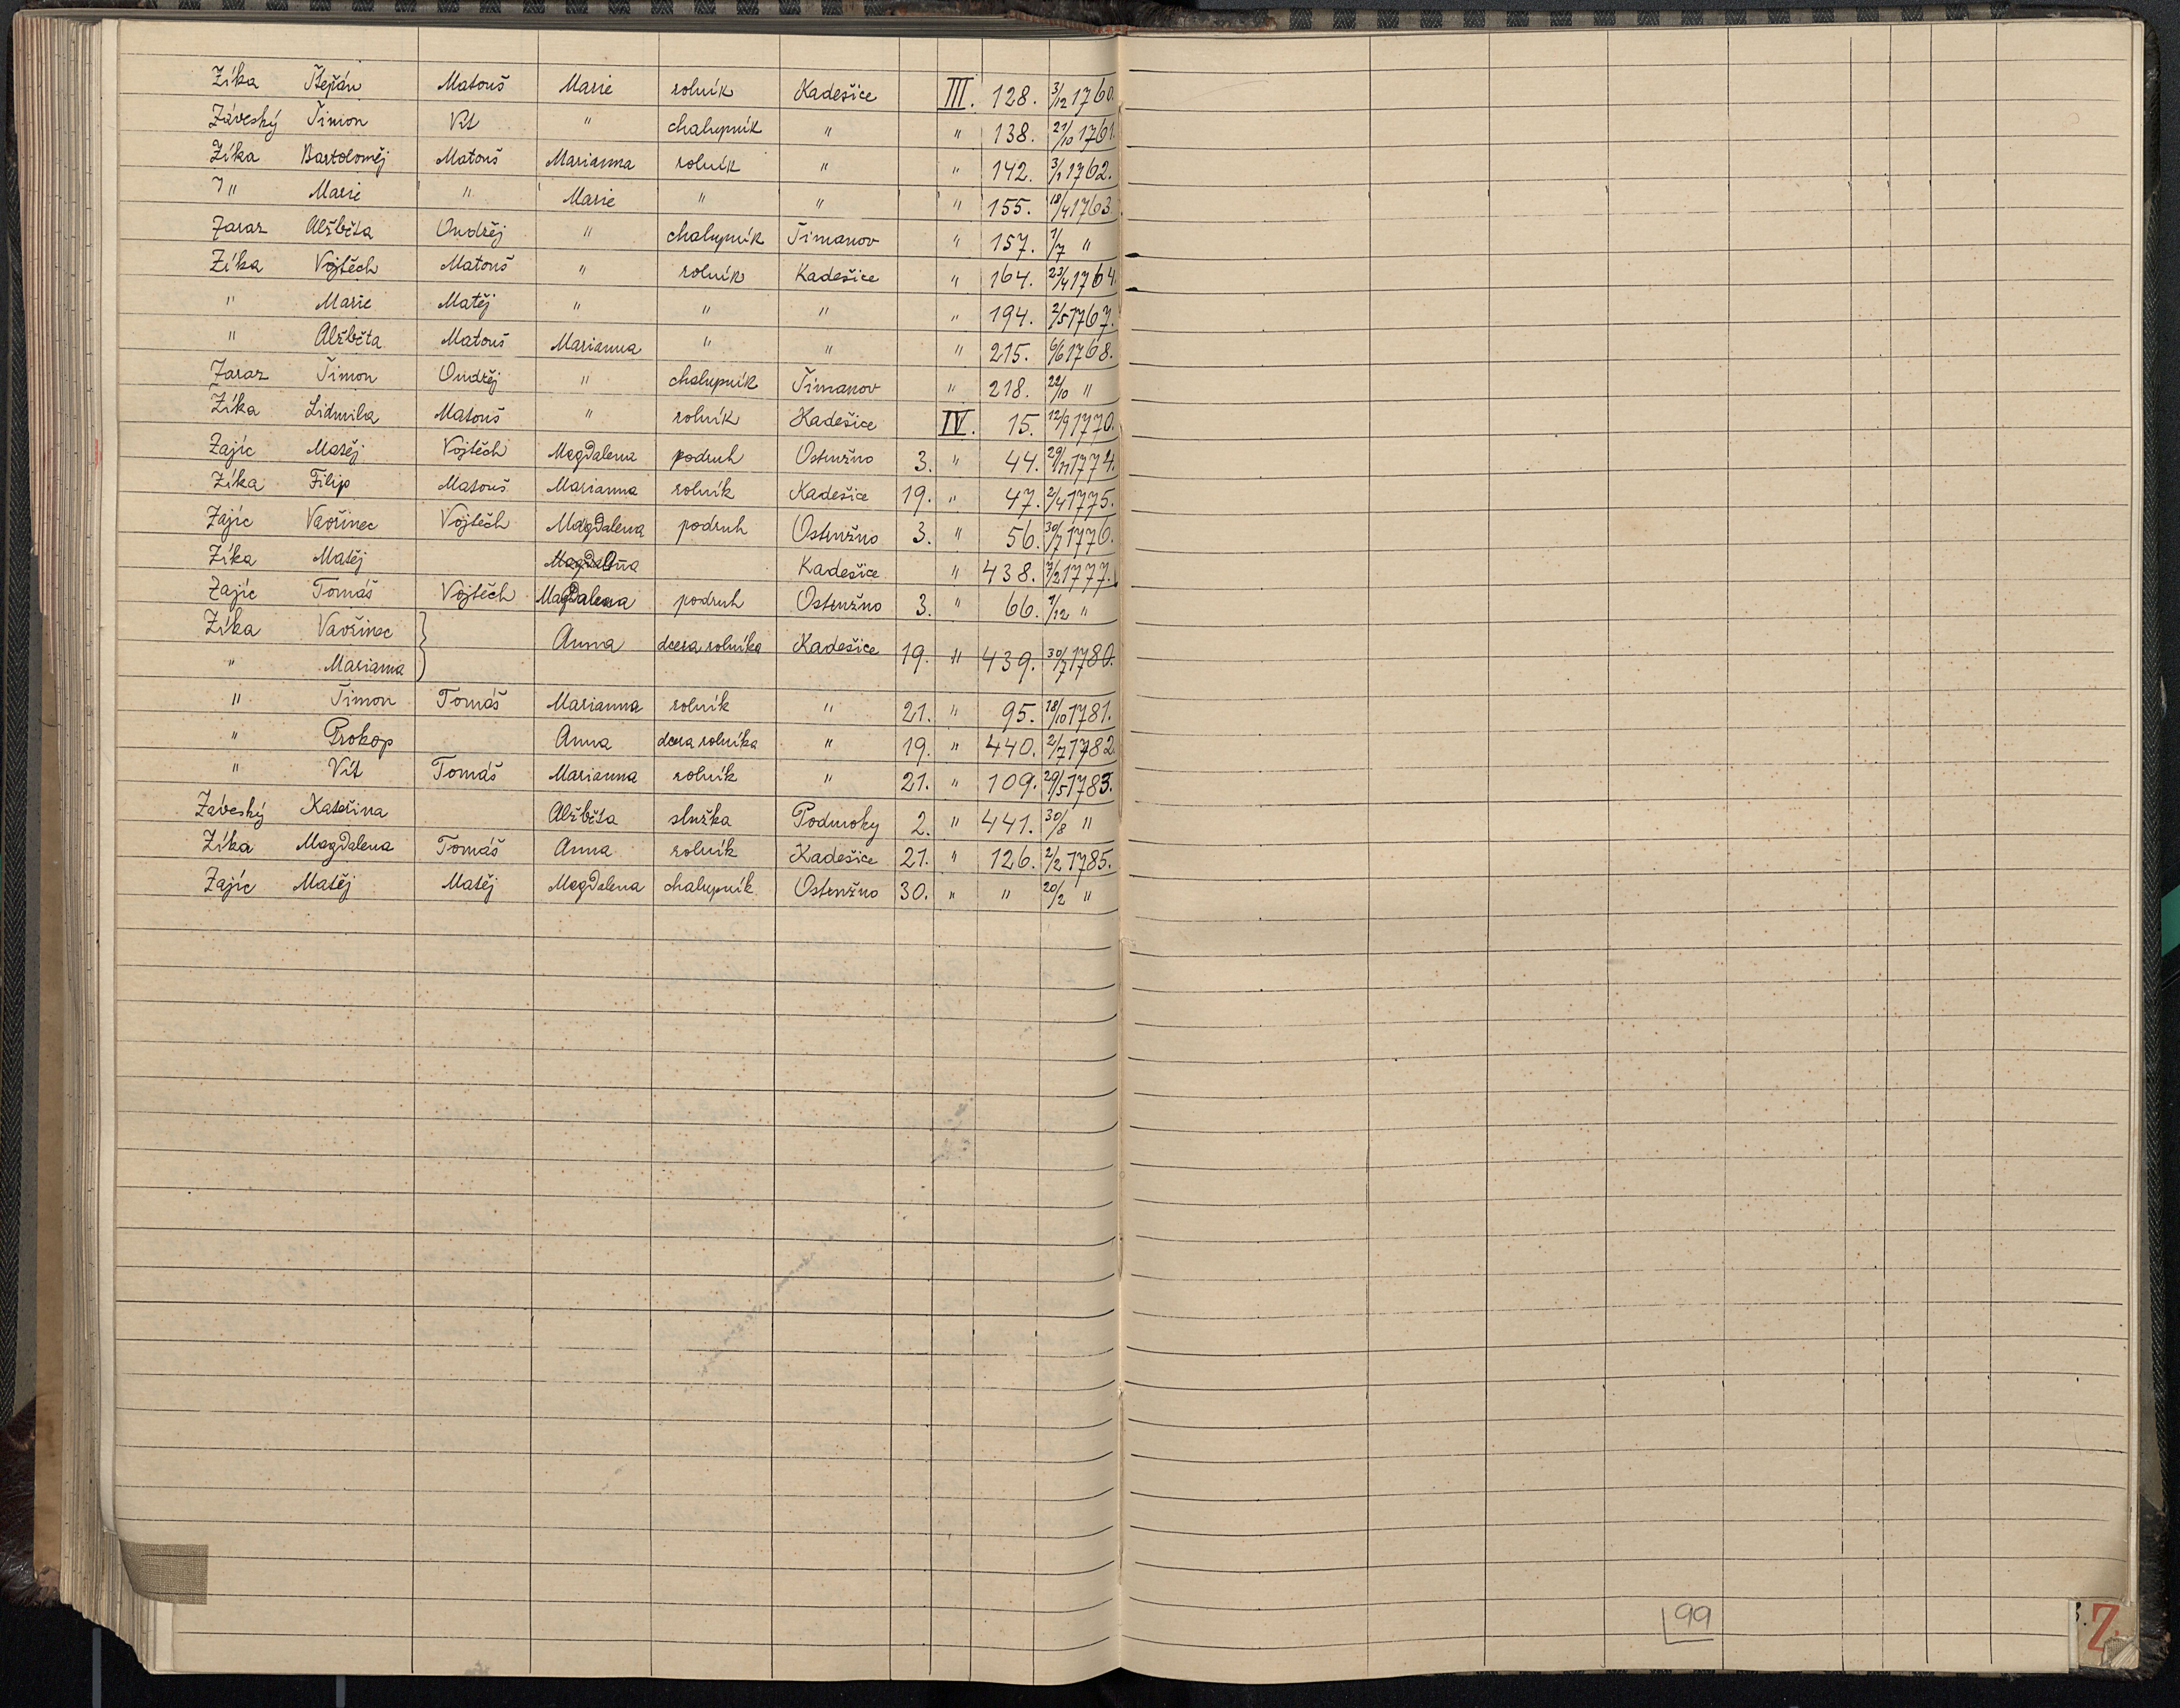 Zíka Štěpán Matouš Marie rolník Kadešice III. 128. 3/12 1760.
Záveský Šimon Vít " chalupník " " 138. 21/10 1761.
Zíka Bartoloměj Matouš Marianna rolník " " 142. 3/1 1762.
" Marie " Marie " " " 155. 18/4 1763.
Zaraz Alžběta Ondřej " chalupník Šimanov " 157. 1/7 "
Zíka Vojtěch Matouš " rolník Kadešice " 164. 23/4 1764.
" Marie Matěj " " " " 194. 2/5 1767.
" Alžběta Matouš Marianna " " " 215. 6/6 1768.
Zaraz Šimon Ondřej " chalupník Šimanov " 218. 22/10 "
Zíka Lidmila Matouš " rolník Kadešice IV. 15. 12/9 1770.
Zajíc Matěj Vojtěch Magdalena podruh Ostružno 3. " 44. 29/11 1774.
Zíka Filip Matouš Marianna rolník Kadešice 19. " 47. 2/4 1775.
Zajíc Vavřinec Vojtěch Magdalena podruh Ostružno 3. " 56. 30/7 1776.
Zíka Matěj Kadešice " 438. 7/2 1777.
Zajíc Tomáš Vojtěch Magdalena podruh Ostružno 3. " 66. /12 "
Zíka Vavřinec } Anna dcera rolníka Kadešice 19. " 439. 30/7 1780.
" Marianna
" Šimon Tomáš Marianna rolník " 21. " 95. 18/10 1781.
" Prokop Anna dcera rolníka " 19. " 440. 2/7 1782.
" Vít Tomáš Marianna rolník " 21. " 109. 29/5 1783.
Záveský Kateřina Alžběta služka Podmoky 2. " 441. 30/8 "
Zíka Magdalena Tomáš Anna rolník Kadešice 21. " 126. 2/2 1785.
Zajíc Matěj Matěj Magdalena chalupník Ostružno 30. " " 20/2 "
99
Z.